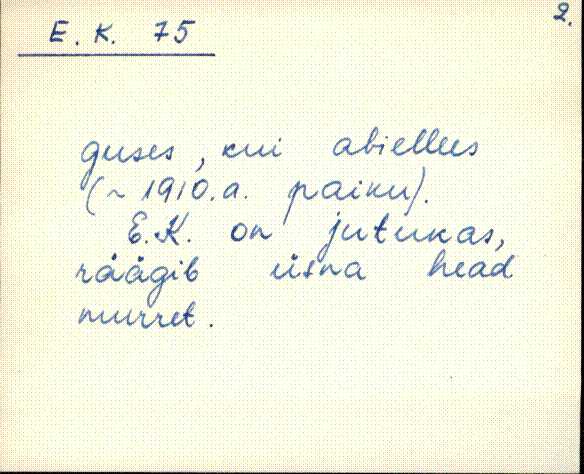 E. K. 75
2.
guses, kui abiellus
(~ 1910.a. paiku).
E.K. on jutukas,
räägib üsna head
murret.